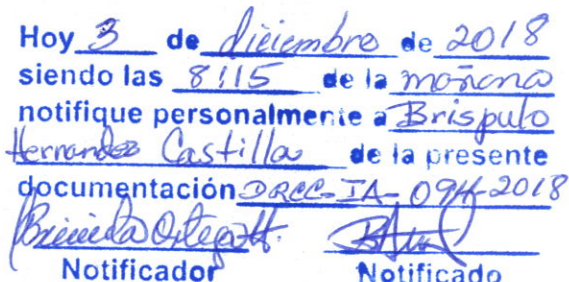 Hoy 3 de diciembre de 2018
siendo las 8:15 de la mañana
notifique personalmente a Brispulo
Hernandez Castilla de la presente
documentación DRCC-IA-094-2018
Notificador Notificado